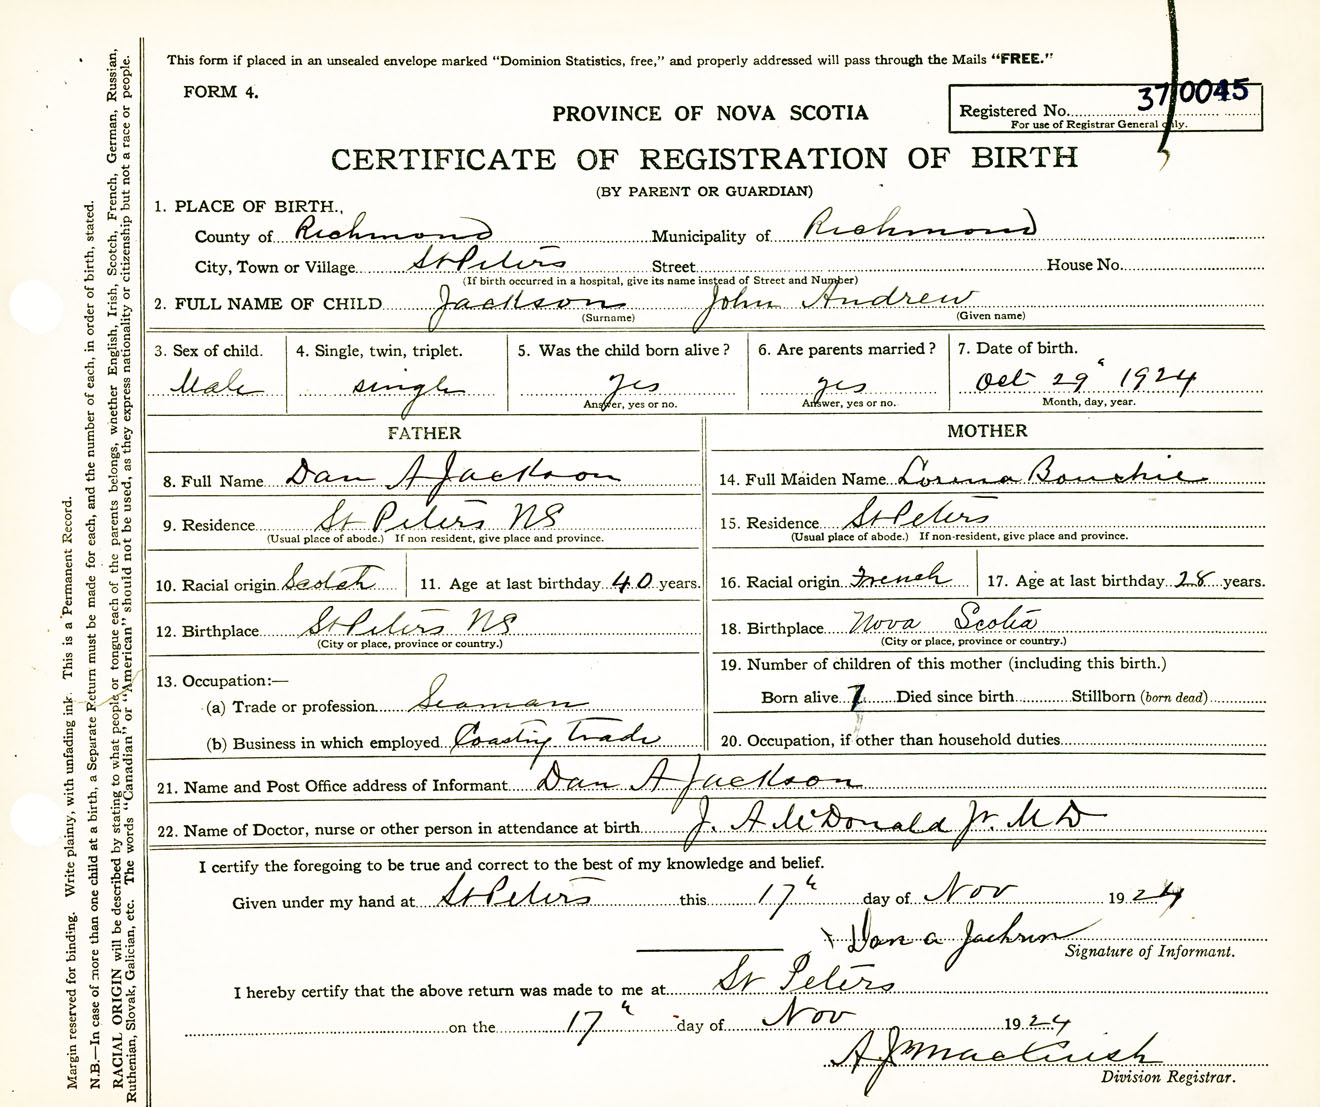 This form if placed in an unsealed envelope marked "Dominion Statistics, free," and properly addressed will pass through the Mails "FREE."
FORM 4.
PROVINCE OF NOVA SCOTIA
Registered No. 370045
For use of Registrar General only.
CERTIFICATE OF REGISTRATION OF BIRTH
(BY PARENT OR GUARDIAN)
1. PLACE OF BIRTH.
County of Richmond Municipality of Richmond
City, Town or Village St Peters Street House No.
(If birth occurred in a hospital, give its name instead of Street and Number)
2. FULL NAME OF CHILD Jackson John Andrew
(Surname) (Given name)
3. Sex of child. 4. Single, twin, triplet. 5. Was the child born alive? 6. Are parents married? 7. Date of birth.
Male single yes yes Oct 29" 1924
Answer, yes or no. Answer, yes or no. Month, day, year.
FATHER MOTHER
8. Full Name Dan A Jackson 14. Full Maiden Name Lorena Bouchie
9. Residence St Peters NS 15. Residence St Peters
(Usual place of abode.) If non resident, give place and province. (Usual place of abode.) If non-resident, give place and province.
10. Racial origin Scotch 11. Age at last birthday 40 years. 16. Racial origin French 17. Age at last birthday 28 years.
12. Birthplace St Peters NS 18. Birthplace Nova Scotia
(City or place, province or country.) (City or place, province or country.)
13. Occupation:— 19. Number of children of this mother (including this birth.)
(a) Trade or profession Seaman Born alive 7 Died since birth Stillborn (born dead)
(b) Business in which employed Coasting trade 20. Occupation, if other than household duties
21. Name and Post Office address of Informant Dan A Jackson
22. Name of Doctor, nurse or other person in attendance at birth J. A McDonald Jr. M D
I certify the foregoing to be true and correct to the best of my knowledge and belief.
Given under my hand at St Peters this 17th day of Nov 1924
x Dan A Jackson
Signature of Informant.
I hereby certify that the above return was made to me at St Peters
on the 17th day of Nov 1924
A J MacCuish
Division Registrar.
Margin reserved for binding. Write plainly, with unfading ink. This is a Permanent Record.
N.B.—In case of more than one child at a birth, a Separate Return must be made for each, and the number of each, in order of birth, stated.
RACIAL ORIGIN will be described by stating to what people or tongue each of the parents belongs, whether English, Irish, Scotch, French, German, Russian,
Ruthenian, Slovak, Galician, etc. The words "Canadian" or "American" should not be used, as they express nationality or citizenship but not a race or people.